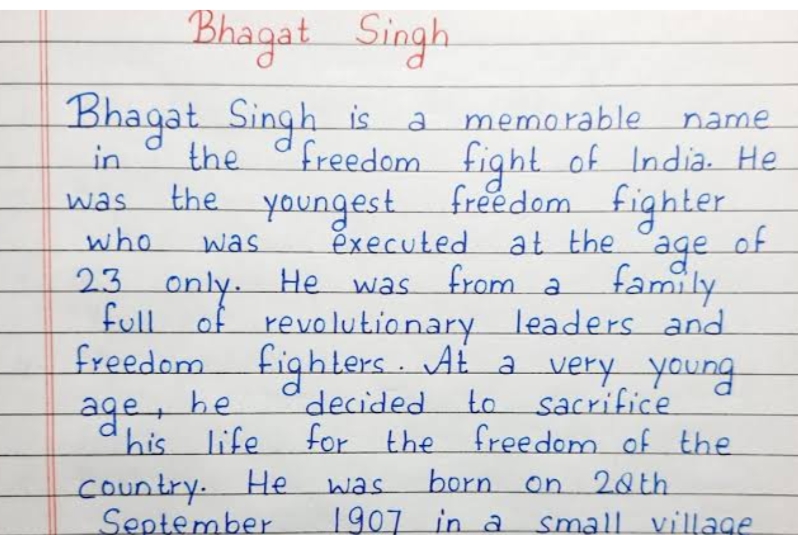 Bhagat Singh
Bhagat Singh is a memorable name
in the freedom fight of India. He
was the youngest freedom fighter
who was executed at the age of
23 only. He was from a family
full of revolutionary leaders and
freedom fighters. At a very young
age, he decided to sacrifice
his life for the freedom of the
country. He was born on 28th
September 1907 in a small village